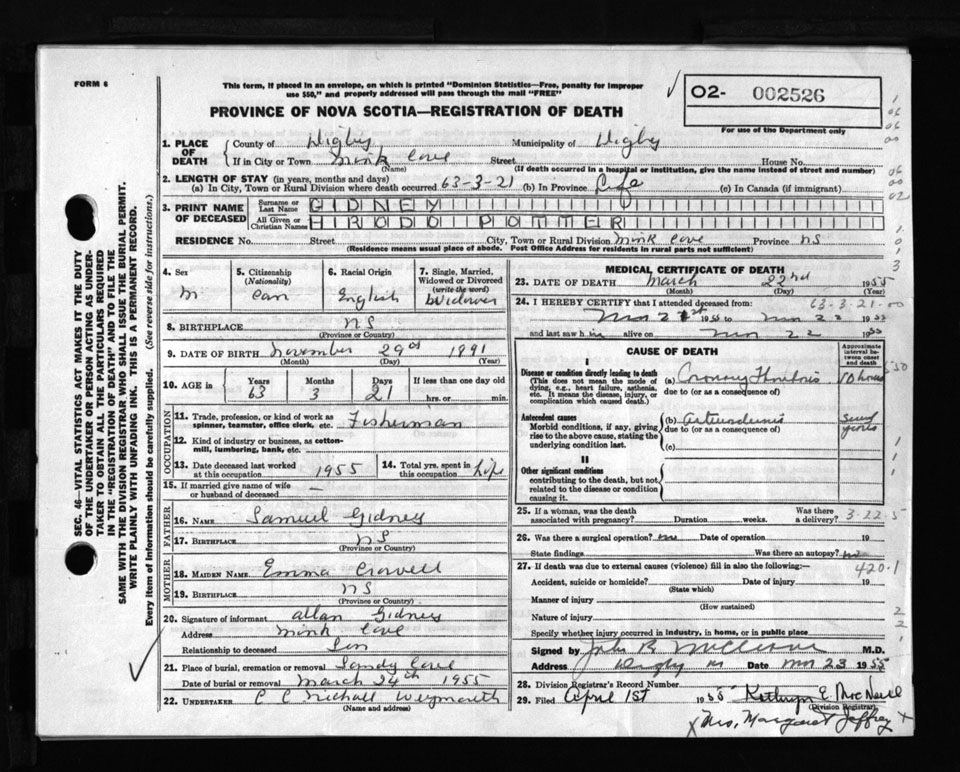 FORM 6
This form, if placed in an envelope, on which is printed "Dominion Statistics—Free, penalty for improper
use $50," and properly addressed will pass through the mail "FREE"
PROVINCE OF NOVA SCOTIA—REGISTRATION OF DEATH
O2- 002526
For use of the Department only
1. PLACE OF DEATH
County of Digby Municipality of Digby
If in City or Town Mink Cove Street House No.
(Name) (If death occurred in a hospital or institution, give the name instead of street and number)
2. LENGTH OF STAY (in years, months and days)
(a) In City, Town or Rural Division where death occurred 63-3-21 (b) In Province Life (c) In Canada (if immigrant)
3. PRINT NAME OF DECEASED
Surname or Last Name GIDNEY
All Given or Christian Names POTTER
RESIDENCE No. Street City, Town or Rural Division Mink Cove Province NS
(Residence means usual place of abode. Post Office Address for residents in rural parts not sufficient)
4. Sex M
5. Citizenship (Nationality) Can
6. Racial Origin English
7. Single, Married, Widowed or Divorced (write the word) Widower
8. BIRTHPLACE NS
(Province or Country)
9. DATE OF BIRTH November 29 1891
(Month) (Day) (Year)
10. AGE in Years 63 Months 3 Days 21 If less than one day old hrs. or min.
OCCUPATION
11. Trade, profession, or kind of work as spinner, teamster, office clerk, etc. Fisherman
12. Kind of industry or business, as cotton-mill, lumbering, bank, etc.
13. Date deceased last worked at this occupation 1955 14. Total yrs. spent in this occupation life
15. If married give name of wife or husband of deceased —
FATHER
16. NAME Samuel Gidney
17. BIRTHPLACE NS
(Province or Country)
MOTHER
18. MAIDEN NAME Emma
19. BIRTHPLACE NS
(Province or Country)
20. Signature of informant Allan Gidney
Address Mink Cove
Relationship to deceased Son
21. Place of burial, cremation or removal Sandy Cove
Date of burial or removal March 24th 1955
22. UNDERTAKER C C Weymouth
(Name and address)
MEDICAL CERTIFICATE OF DEATH
23. DATE OF DEATH March 22nd 1955
(Month) (Day) (Year)
24. I HEREBY CERTIFY that I attended deceased from: 63-3-21-00
1955 to Mar 22 1955
and last saw h alive on Mar 22 1955
CAUSE OF DEATH
Approximate interval between onset and death
I
Disease or condition directly leading to death (a) Coronary 10 hours
(This does not mean the mode of dying, e.g., heart failure, asthenia, etc. It means the disease, injury, or complication which caused death.) due to (or as a consequence of)
Antecedent causes (b) years
Morbid conditions, if any, giving rise to the above cause, stating the underlying condition last. due to (or as a consequence of)
(c)
II
Other significant conditions
contributing to the death, but not related to the disease or condition causing it.
25. If a woman, was the death associated with pregnancy? Duration weeks. Was there a delivery? 3-22-5
26. Was there a surgical operation? no Date of operation 19
State findings Was there an autopsy? no
27. If death was due to external causes (violence) fill in also the following:— 420.1
Accident, suicide or homicide? Date of injury 19
(State which)
Manner of injury
(How sustained)
Nature of injury
Specify whether injury occurred in industry, in home, or in public place
Signed by John R M.D.
Address Digby NS Date Mar 23 1955
28. Division Registrar's Record Number
29. Filed April 1st 1955 Kathryn E. MacNeill
(Division Registrar)
x Mrs. Margaret Jeffrey x
SEC. 46—VITAL STATISTICS ACT MAKES IT THE DUTY
OF THE UNDERTAKER OR PERSON ACTING AS UNDER-
TAKER TO OBTAIN ALL THE PARTICULARS REQUIRED
IN THE "REGISTRATION OF DEATH" AND TO FILE THE
SAME WITH THE DIVISION REGISTRAR WHO SHALL ISSUE THE BURIAL PERMIT.
WRITE PLAINLY WITH UNFADING INK. THIS IS A PERMANENT RECORD.
Every item of information should be carefully supplied. (See reverse side for instructions.)